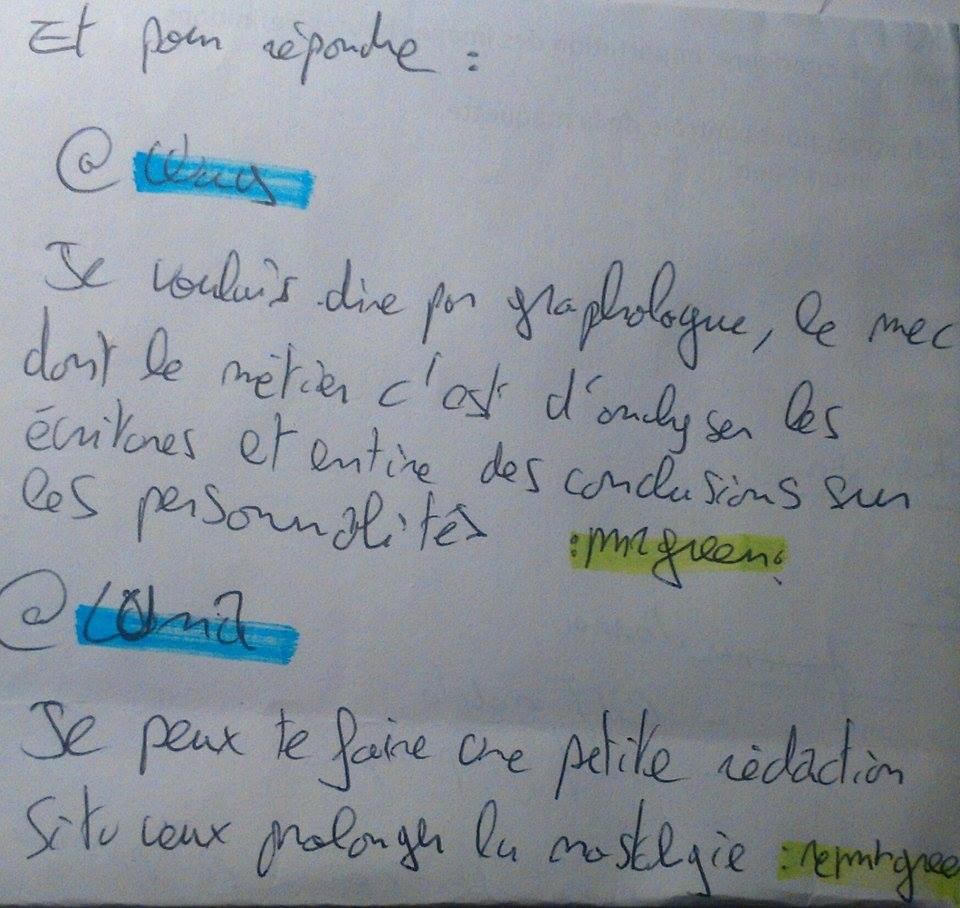 Et pour répondre :
@
Je voulais dire par graphologue, le mec
dont le métier c'est d'analyser les
écritures et entire des conclusions sur
les personnalités :mrgreen:
@
Je peux te faire une petite rédaction
Si tu veux prolonger la nostalgie :remrgree